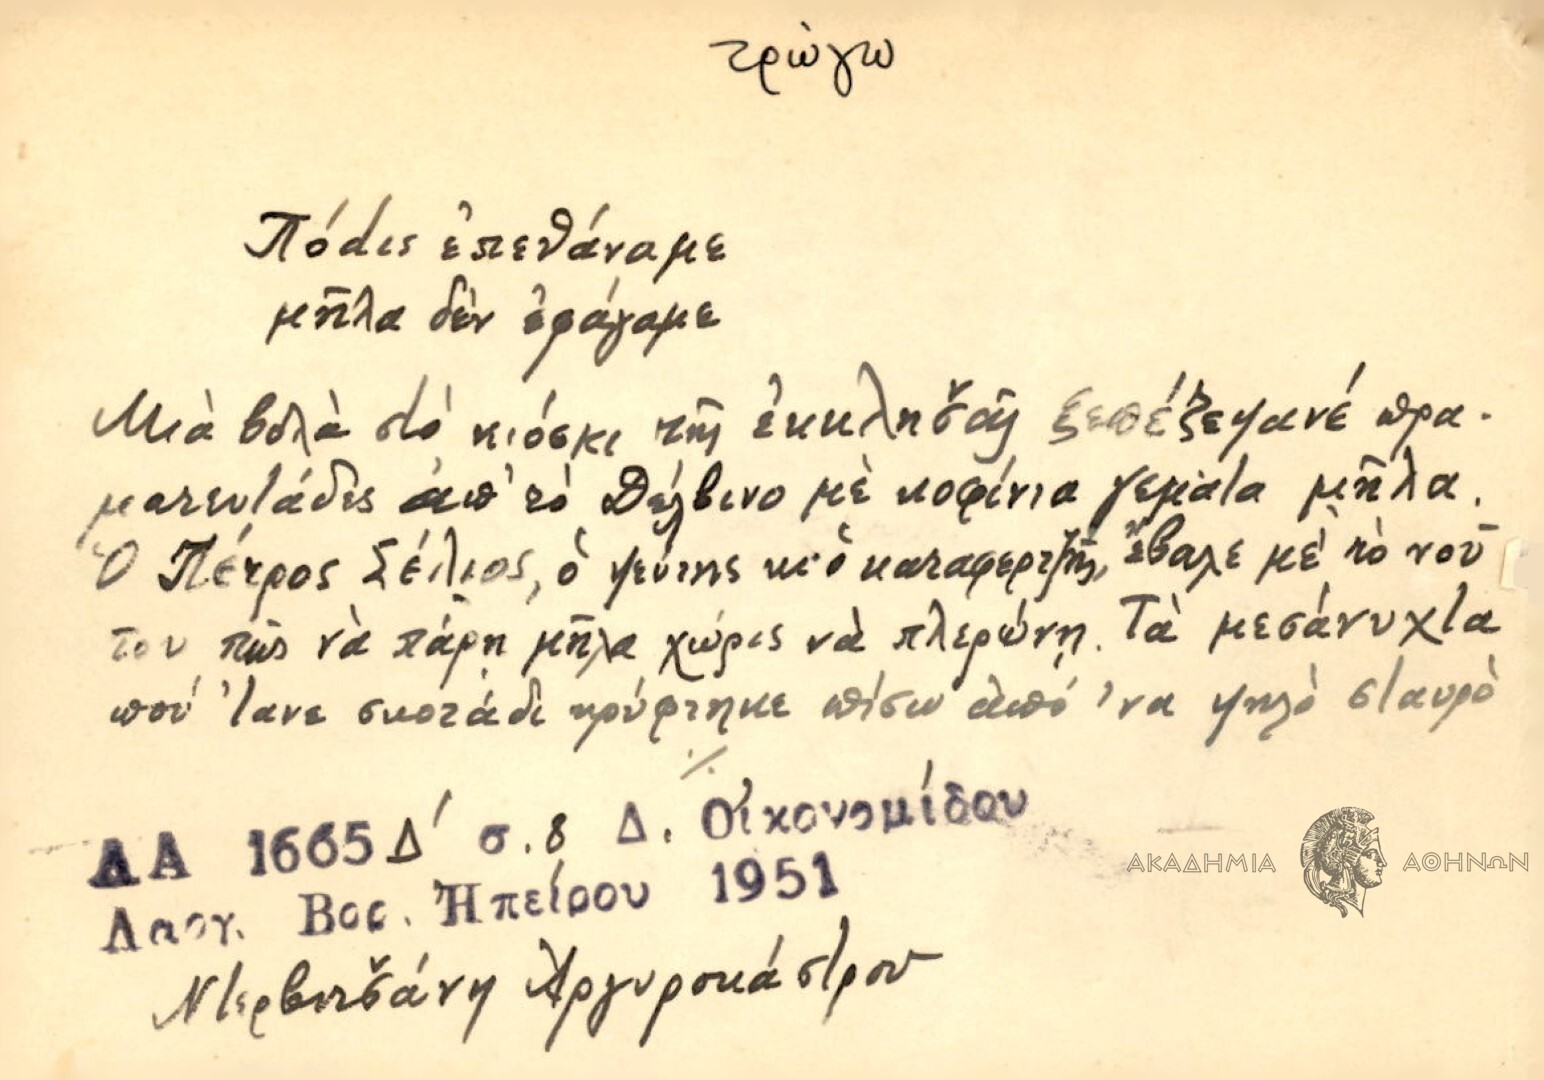 τρώγω
Πόσις ἐπεθάναμε
μῆλα δὲν ἐφάγαμε
Μιὰ βολὰ στὸ κιόσκι τῆς ἐκκλησ̌ᾶς ξεπέζεψανέ πρα-
ματευτάδες ἀπ' τὸ Δέλβινο μὲ κοφίνια γεμάτα μῆλα.
Ὁ Πέτρος Σέλιος, ὁ ψεύτης κι' ὁ καταφερτζῆς, ἔβαλε μὲ τὸ νοῦ
του πῶς νὰ πάρῃ μῆλα χώρις νὰ πλερώνῃ. Τὰ μεσάνυχτα
πού 'τανε σκοτάδι κρύφτηκε πίσω ἀπό 'να ψηλὸ σταυρὸ
./.
ΛΑ 1665 Δ' σ. 8 Δ. Οἰκονομίδου
Λαογ. Βορ. Ἠπείρου 1951
Ντερβιτσ̌άνη Ἀργυροκάστρου
ΑΚΑΔΗΜΙΑ ΑΘΗΝΩΝ